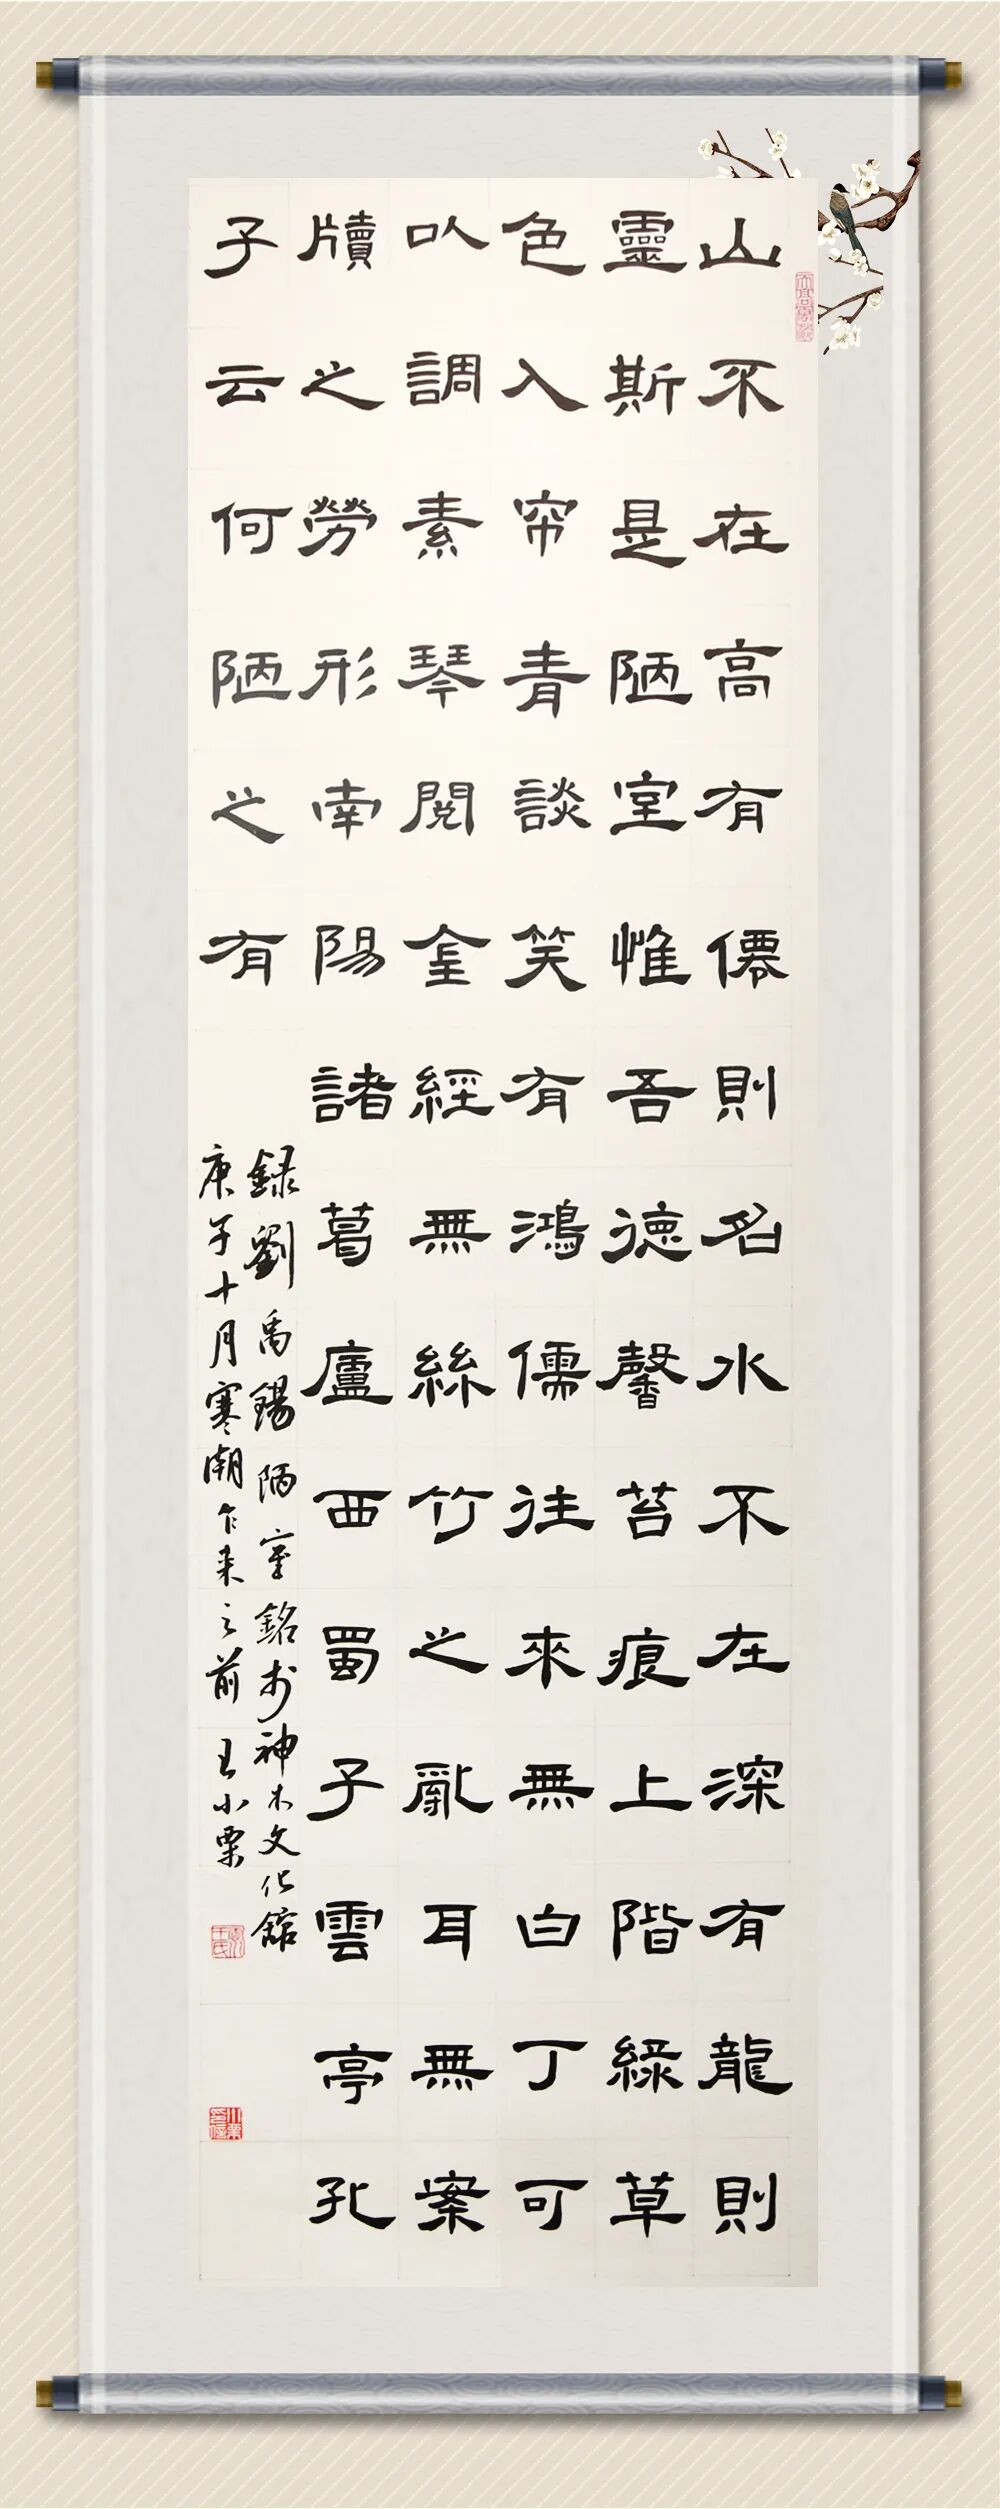 山不在高有僊則名水不在深有龍則
靈斯是陋室惟吾德馨苔痕上階綠草
色入帘青談笑有鴻儒往來無白丁可
以調素琴閱金經無絲竹之亂耳無案
牘之勞形南陽諸葛廬西蜀子雲亭孔
子云何陋之有
録劉禹錫陋室銘於神木文化舘
庚子十月寒潮乍来之前 王小栗